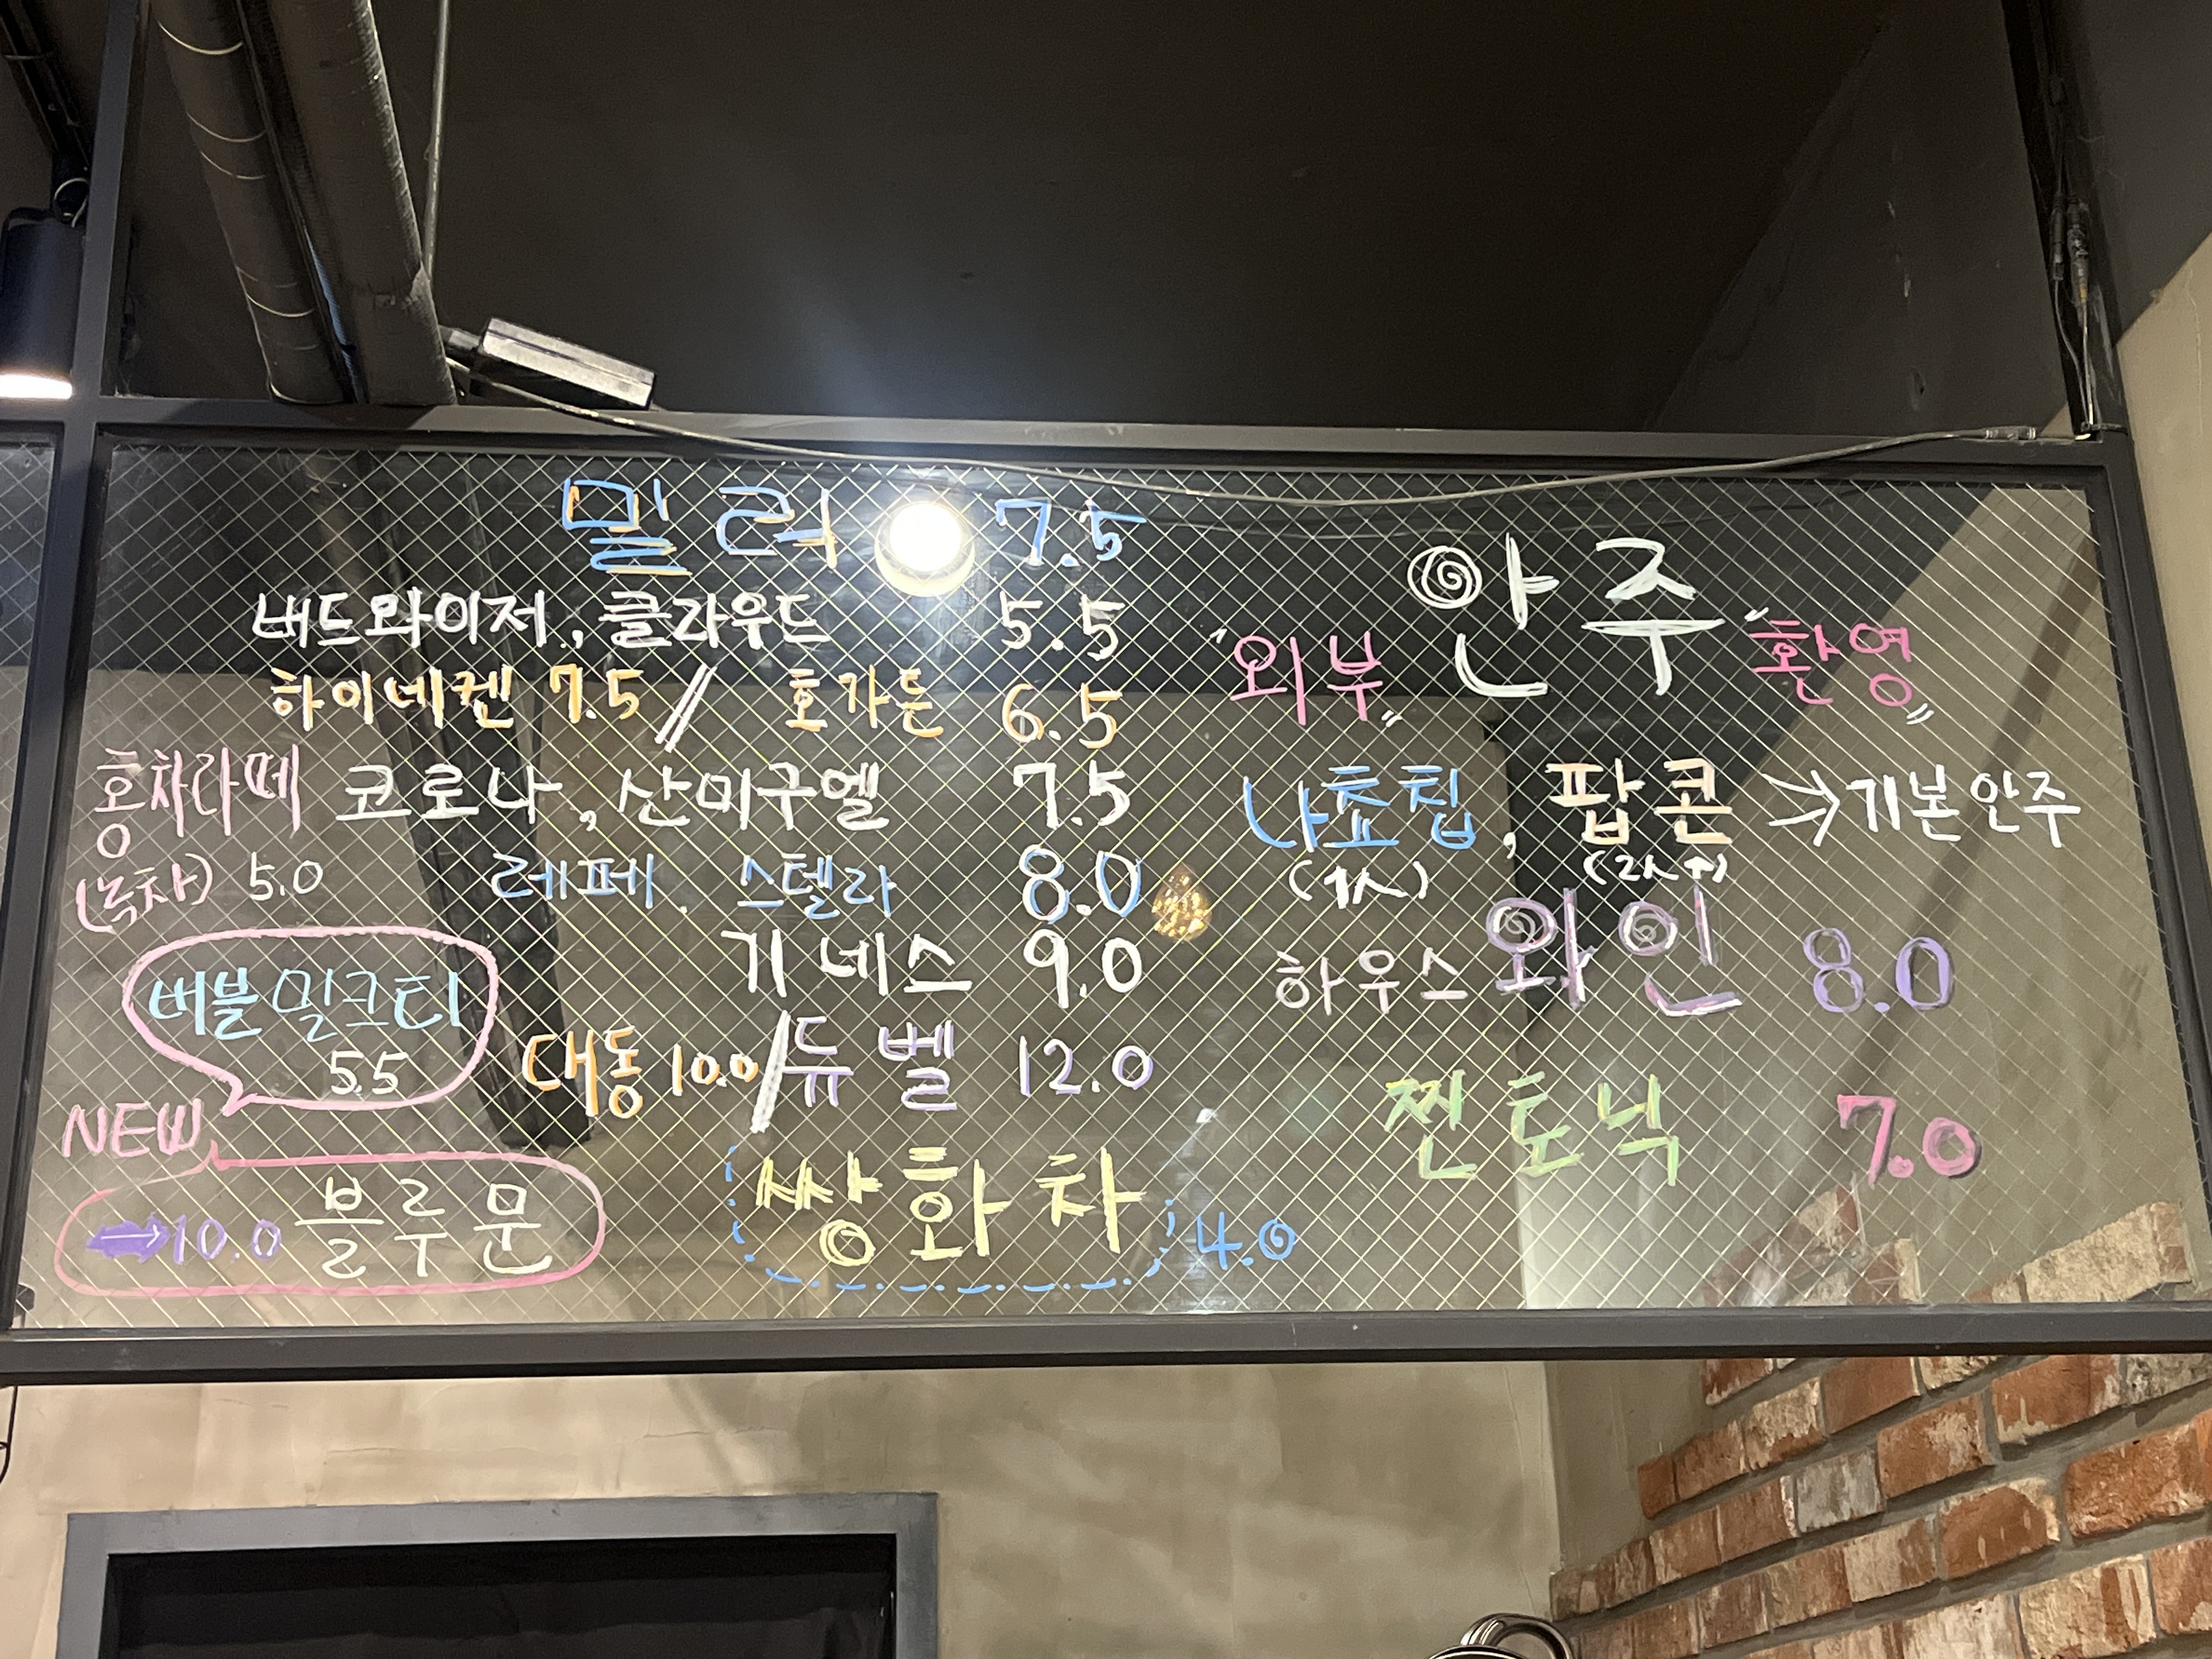 밀러 7.5
버드와이저, 클라우드 5.5
하이네켄 7.5 // 호가든 6.5
홍차라떼
(녹차) 5.0
코로나, 산미구엘 7.5
레페, 스텔라 8.0
기네스 9.0
버블밀크티
5.5
대동 10.0/듀벨 12.0
NEW
➡10.0 블루문
쌍화차 4.0
"외부" 안주 "환영"
나쵸칩, 팝콘 → 기본안주
(1人) (2人↑)
하우스 와인 8.0
찐토닉 7.0